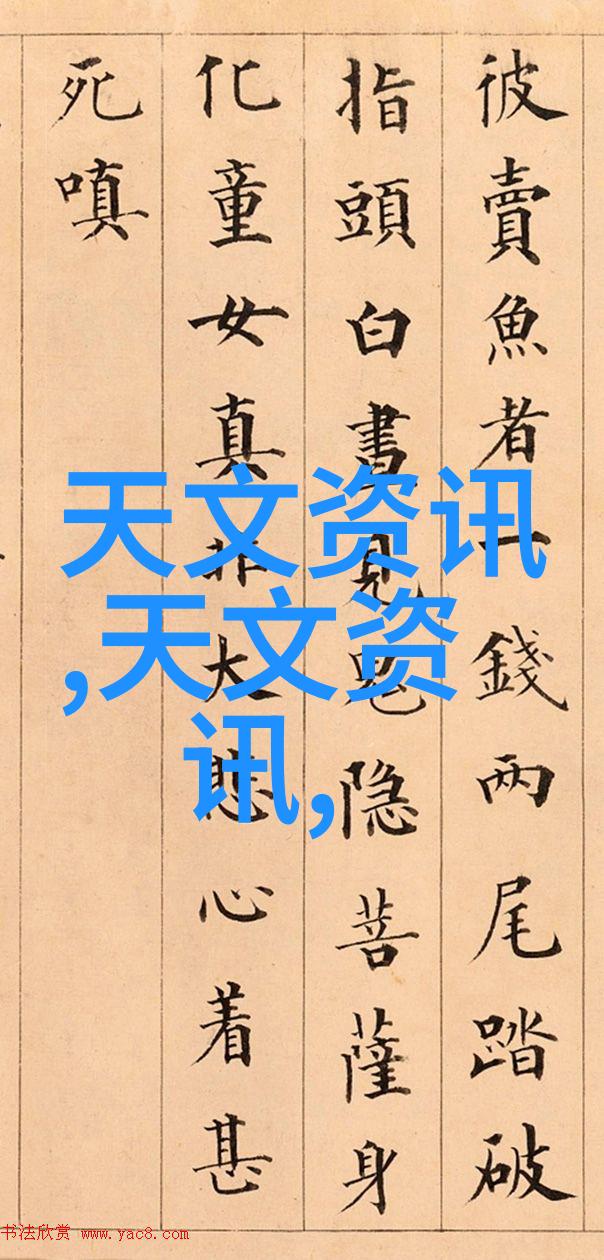 彼賣魚者一錢两尾踏破
指頭白晝見鬼隐菩薩身
化童女真非大悲心着甚
死嗔
天文资讯
,天文资
讯,
书法欣赏 www.yac8.com